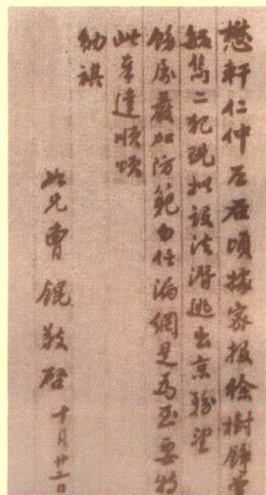 懋軒仁仲左右頃據密报徐樹錚曾
毓雋二犯現拟設法潛逃出京務望
飭属嚴加防範勿任漏網是為至要特
此奉達順頌
勋祺
如兄曹錕敬啓 十月廿二日